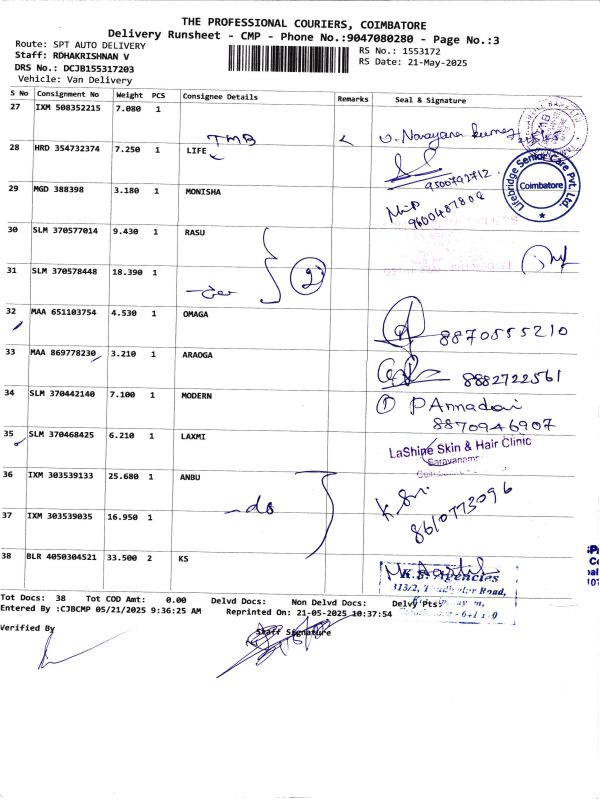 THE PROFESSIONAL COURIERS, COIMBATORE
Delivery Runsheet - CMP - Phone No.:9047080280 - Page No.:3
Route: SPT AUTO DELIVERY
Staff: RDHAKRISHNAN V
RS No.: 1553172
DRS No.: DCJB155317203
RS Date: 21-May-2025
Vehicle: Van Delivery
S No Consignment No Weight PCS Consignee Details Remarks Seal & Signature
27 IXM 508352215 7.080 1 TMB
28 HRD 354732374 7.250 1 LIFE 9500792712
Lifebridge Senior Care Pvt. Ltd. Coimbatore
29 MGD 388398 3.180 1 MONISHA
30 SLM 370577014 9.430 1 RASU
2
31 SLM 370578448 18.390 1
32 MAA 651103754 4.530 1 OMAGA 8870555210
33 MAA 869778230 3.210 1 ARAOGA 8882722561
34 SLM 370442140 7.100 1 MODERN P Annadai
8870946907
35 SLM 370468425 6.210 1 LAXMI LaShine Skin & Hair Clinic
36 IXM 303539133 25.680 1 ANBU
-do
8610773096
37 IXM 303539035 16.950 1
38 BLR 4050304521 33.500 2 KS
K.S. Agencies
Tot Docs: 38 Tot COD Amt: 0.00 Delvd Docs: Non Delvd Docs: Delvy Pts:
Entered By :CJBCMP 05/21/2025 9:36:25 AM Reprinted On: 21-05-2025 10:37:54
Verified By Staff Signature